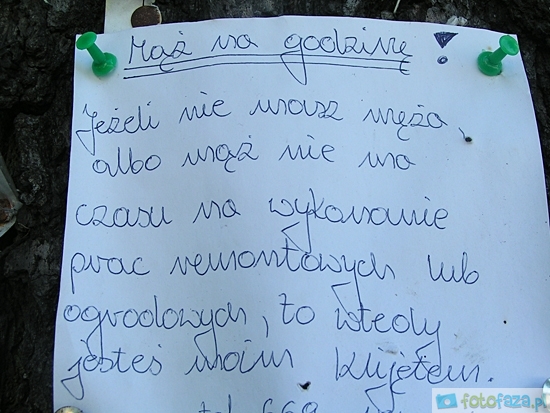 Mąż na godzinę!
Jeżeli nie masz męża,
albo mąż nie ma
czasu na wykonanie
prac remontowych lub
ogrodowych, to wtedy
jesteś moim Klijętem.
tel 669
fotofaza.pl